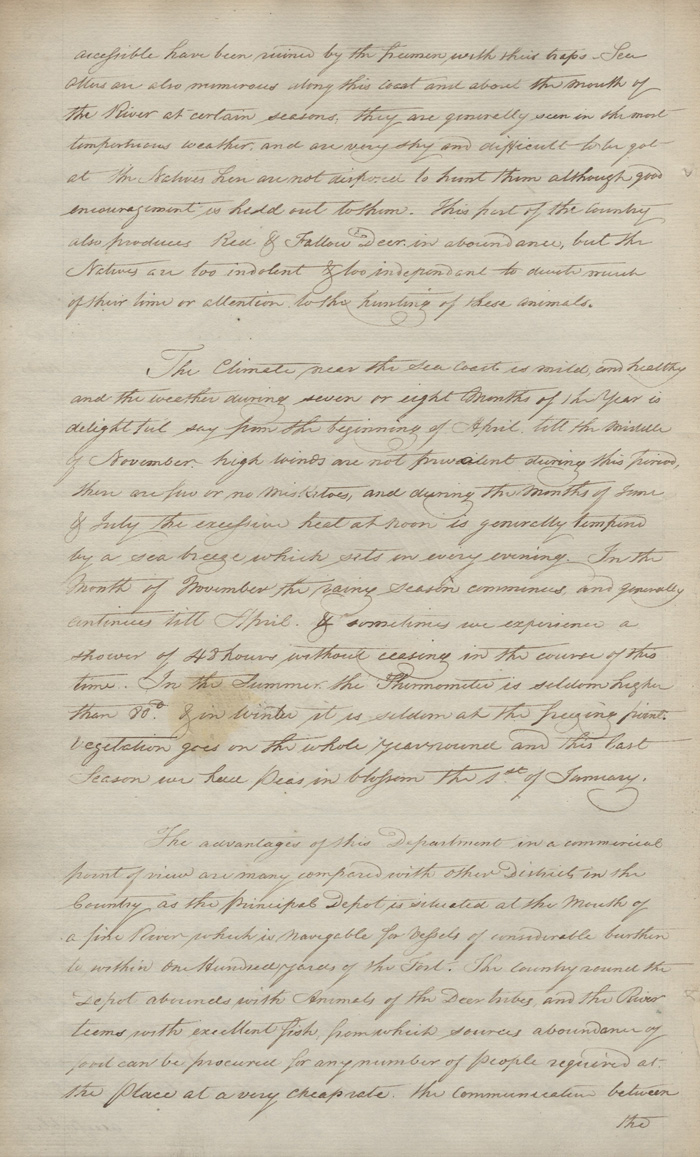 accessible have been ruined by the freemen with their traps - Sea
Otters are also numerous along this Coast and about the Mouth of
the River at certain seasons, they are generally seen in the most
tempestuous weather, and are very shy and difficult to be got
at the Natives here are not disposed to hunt them although good
encouragement is held out to them. This part of the Country
also produces Red & Fallow Deer in aboundance, but the
Natives are too indolent & too independant to devote much
of their time or attention to the hunting of these animals.
The Climate near the Sea Coast is mild, and healthy
and the weather during seven or eight Months of the Year is
delightful say from the beginning of April till the Middle
of November. high winds are not prevalent during this period,
there are few or no Misketoes, and during the Months of June
& July the excessive heat at noon is generally tempered
by a sea breeze which sets in every evening. In the
Month of November the rainy season commences, and generally
continues till April. & sometimes we experience a
shower of 48 hours without ceasing in the course of this
time. In the Summer the Thermometer is seldom higher
than 80°. & in Winter it is seldom at the freezing point.
Vegetation goes on the whole year round and this last
Season we had Peas in blossom the 1st of January.
The advantages of this Department in a commercial
point of view are many compared with other Districts in the
Country, as the Principal Depot is situated at the Mouth of
a fine River which is Navigable for Vessels of considerable burthen
to within One Hundred yards of the Fort. The Country round the
Depot abounds with Animals of the Deer tribes, and the River
teems with excellent fish, from which sources aboundance of
food can be procured for any number of People required at
the Place at a very cheap rate. the Communication between
the